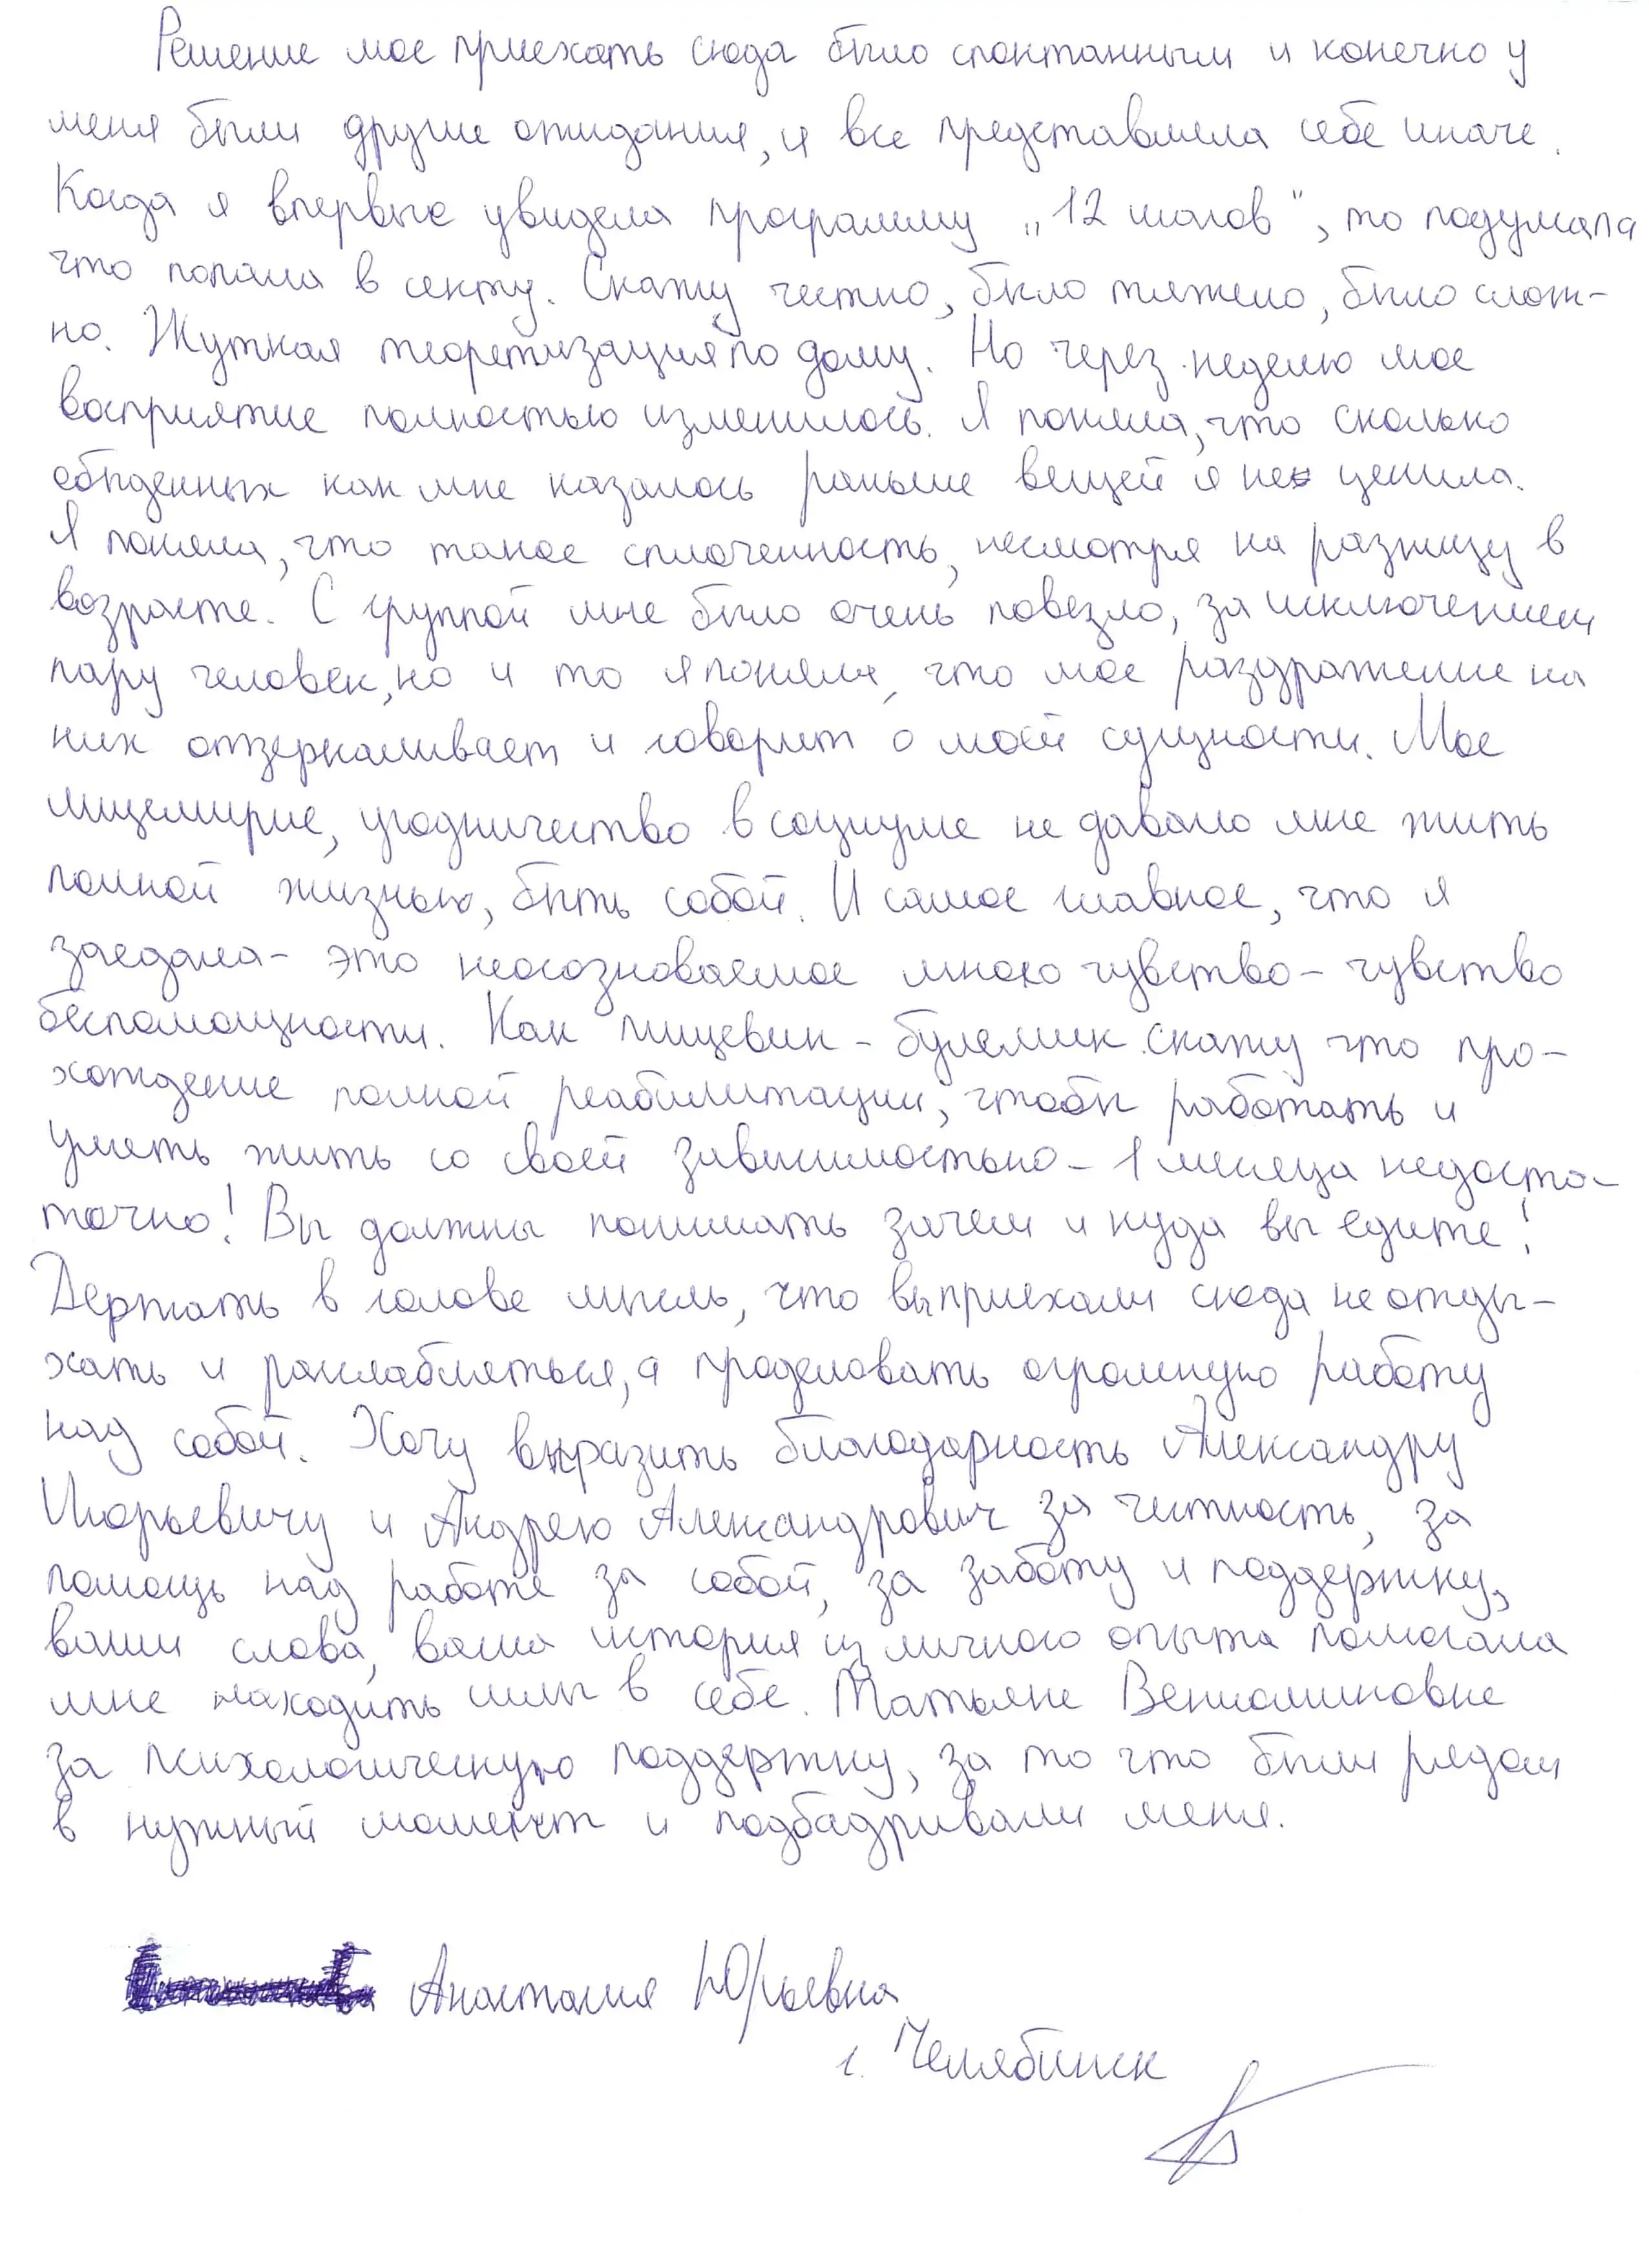 Решение мое приехать сюда было спонтанным и конечно у
меня были другие ожидания, и все представляла себе иначе.
Когда я впервые увидела программу „12 шагов", то подумала
что попала в секту. Скажу честно, было тяжело, было слож-
но. Жуткая теоретизация по дому. Но через неделю мое
восприятие полностью изменилось. Я поняла, что сколько
обыденных как мне казалось раньше вещей я не ценила.
Я поняла, что такое сплоченность, несмотря на разницу в
возрасте. С группой мне было очень повезло, за исключением
пару человек, но и то я поняла, что мое раздражение на
них отзеркаливает и говорит о моей сущности. Мое
лицемирие, угодничество в социуме не давало мне жить
полной жизнью, быть собой. И самое главное, что я
заедала - это неосозноваемое мною чувство - чувство
беспомощности. Как пищевик - булемик скажу что про-
хождение полной реабилитации, чтобы работать и
уметь жить со своей зависимостью - 1 месяца недоста-
точно! Вы должны понимать зачем и куда вы едите!
Держать в голове мысль, что вы приехали сюда не отды-
хать и расслабляться, а проделовать огромную работу
над собой. Хочу выразить благодарность Александру
Игорьевичу и Андрею Александрович за честность, за
помощь над работе за собой, за заботу и поддержку,
ваши слова, ваша история из личного опыта помогала
мне находить силы в себе. Татьяне Вениаминовне
за психологическую поддержку, за то что были рядом
в нужный момент и подбадривали меня.
Анастасия Юрьевна
г. Челябинск